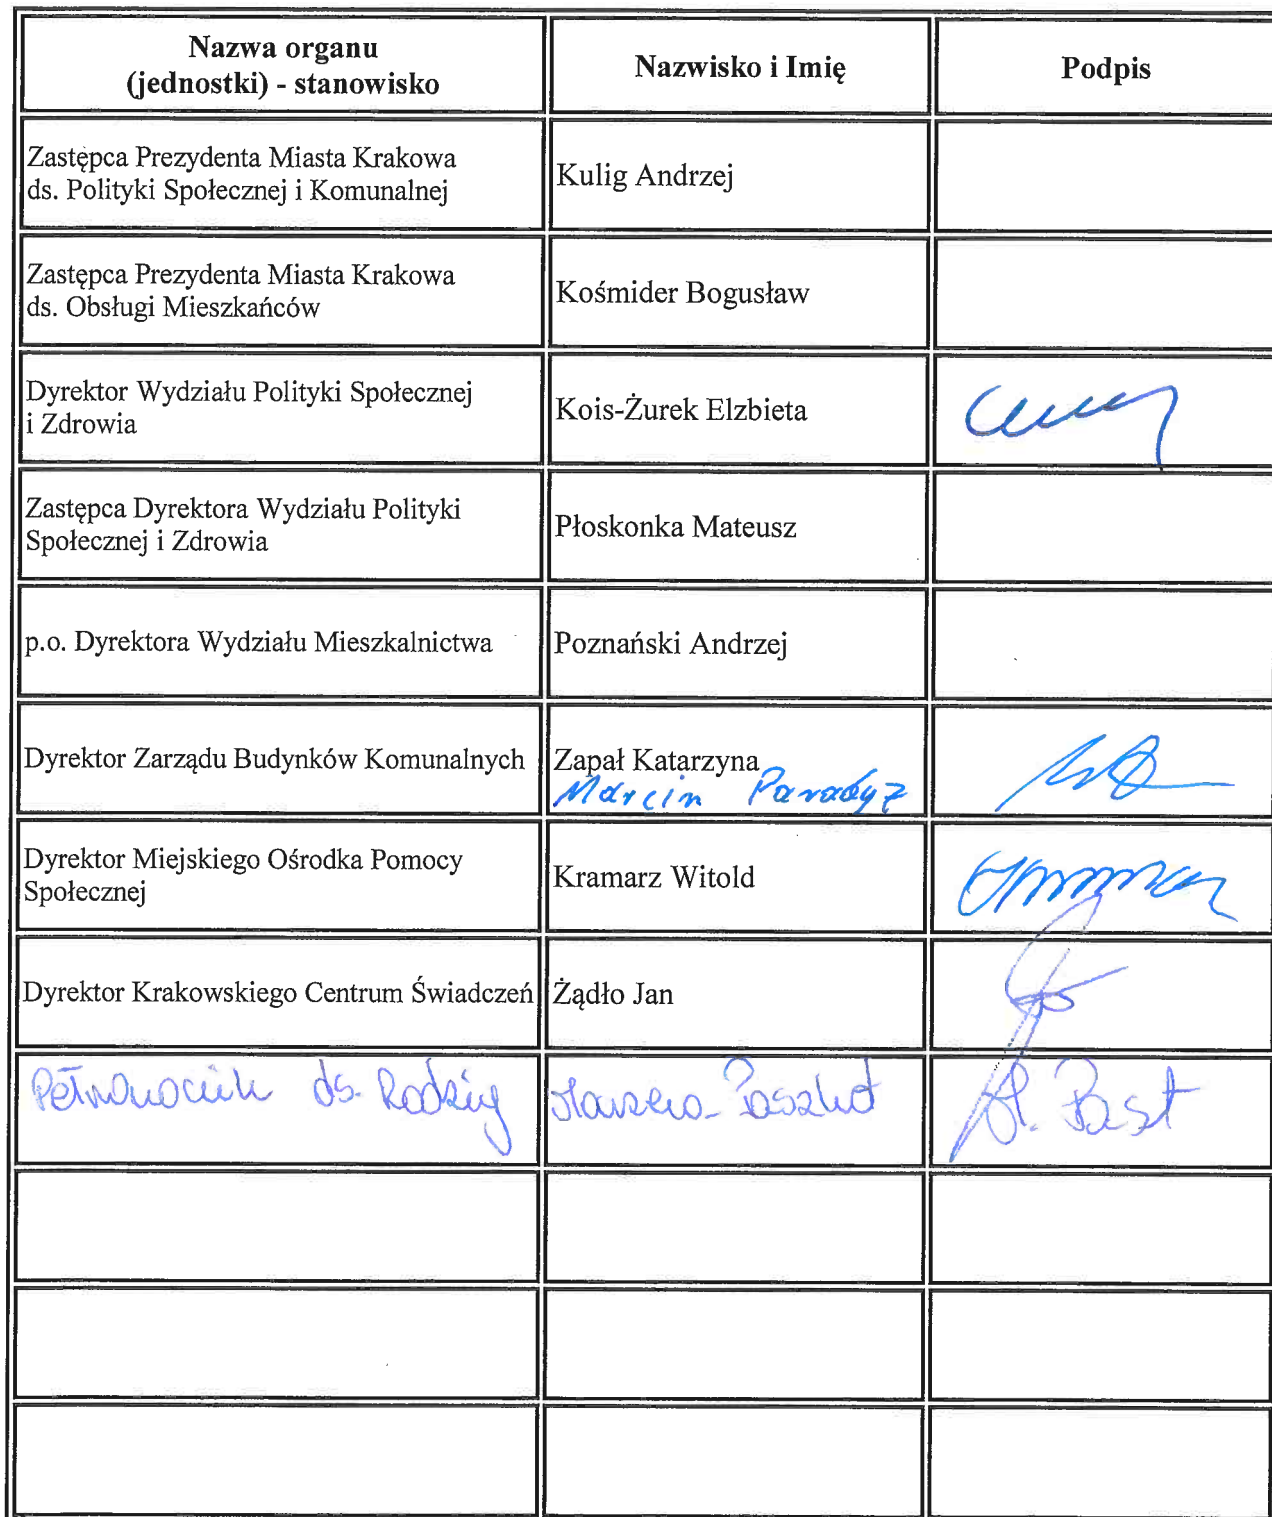 Nazwa organu
(jednostki) - stanowisko
Nazwisko i Imię
Podpis
Zastępca Prezydenta Miasta Krakowa
ds. Polityki Społecznej i Komunalnej
Kulig Andrzej
Zastępca Prezydenta Miasta Krakowa
ds. Obsługi Mieszkańców
Kośmider Bogusław
Dyrektor Wydziału Polityki Społecznej
i Zdrowia
Kois-Żurek Elzbieta
Zastępca Dyrektora Wydziału Polityki
Społecznej i Zdrowia
Płoskonka Mateusz
p.o. Dyrektora Wydziału Mieszkalnictwa
Poznański Andrzej
Dyrektor Zarządu Budynków Komunalnych
Zapał Katarzyna
Marcin Paradyż
Dyrektor Miejskiego Ośrodka Pomocy
Społecznej
Kramarz Witold
Dyrektor Krakowskiego Centrum Świadczeń
Żądło Jan
Pełnomocnik ds. Rodziny